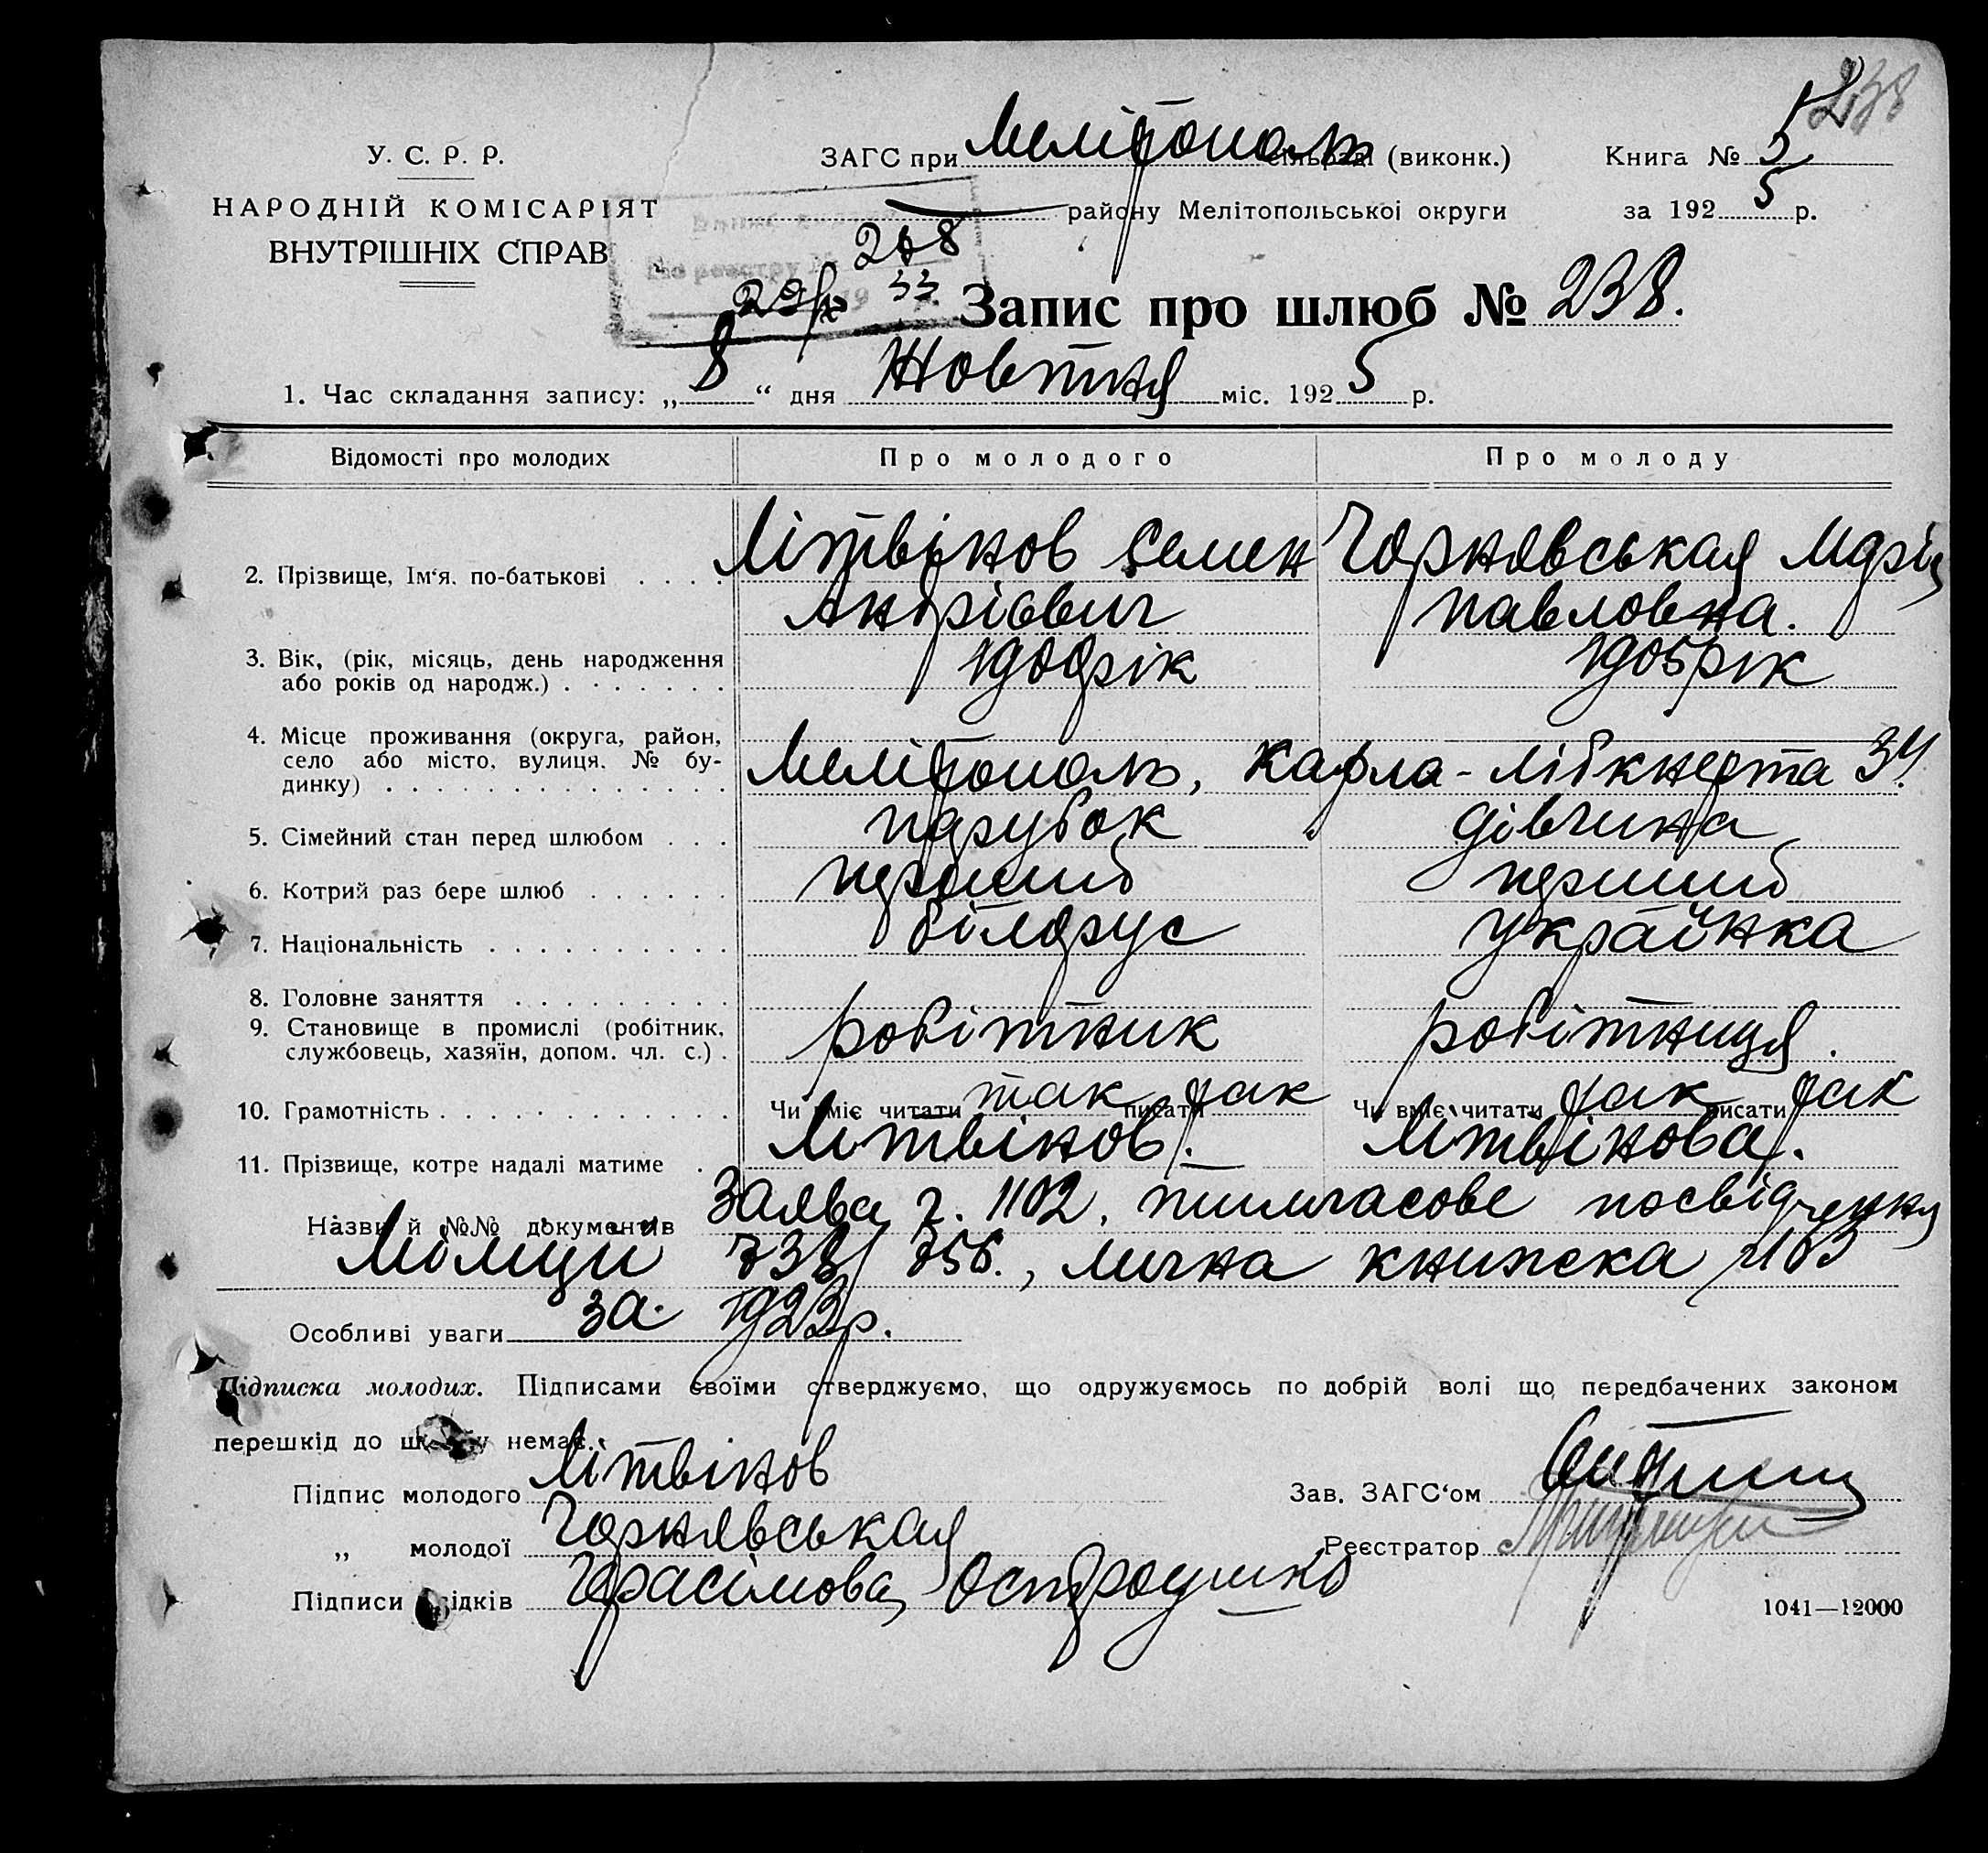 238
У. С. Р. Р.
ЗАГС при Мелітополь сільраді (виконк.) Книга № 5
НАРОДНІЙ КОМІСАРІЯТ
району Мелітопольської округи за 1925 р.
ВНУТРІШНІХ СПРАВ
по реєстру № 268
29/IX 19 33
Запис про шлюб № 238.
1. Час складання запису: „8“ дня Жовтня міс. 1925 р.
Відомості про молодих Про молодого Про молоду
2. Прізвище, Ім‘я. по-батькові . . . . Літвінов Семен Чорнявськая Марія
Андрієвич Павловна.
3. Вік, (рік, місяць, день народження
або років од народж.) . . . . . . . рік 1905 рік
4. Місце проживання (округа, район,
село або місто, вулиця. № бу-
динку) . . . . . . . . . . . . . . Мелітополь, Карла-Лібкнехта 34.
5. Сімейний стан перед шлюбом . . . парубок дівчина
6. Котрий раз бере шлюб . . . . . . перший перший
7. Національність . . . . . . . . . . білорус українка
8. Головне заняття . . . . . . . . .
9. Становище в промислі (робітник,
службовець, хазяїн, допом. чл. с.) . робітник робітниця.
10. Грамотність . . . . . . . . . . . . Чи вміє читати так писати так Чи вміє читати так писати так
11. Прізвище, котре надалі матиме . Літвінов. Літвінова.
Назви й №№ документів Заява ч. 1102, тимчасове посвідчення
Міліції 738/756., лична книжка 2103
Особливі уваги за 1923 р.
Підписка молодих. Підписами своїми стверджуємо, що одружуємось по добрій волі що передбачених законом
перешкід до шлюбу немає.
Підпис молодого Літвінов Зав. ЗАГС‘ом
„ молодої Чорнявськая Реєстратор
Підписи свідків Герасімова Остроушко
1041—12000